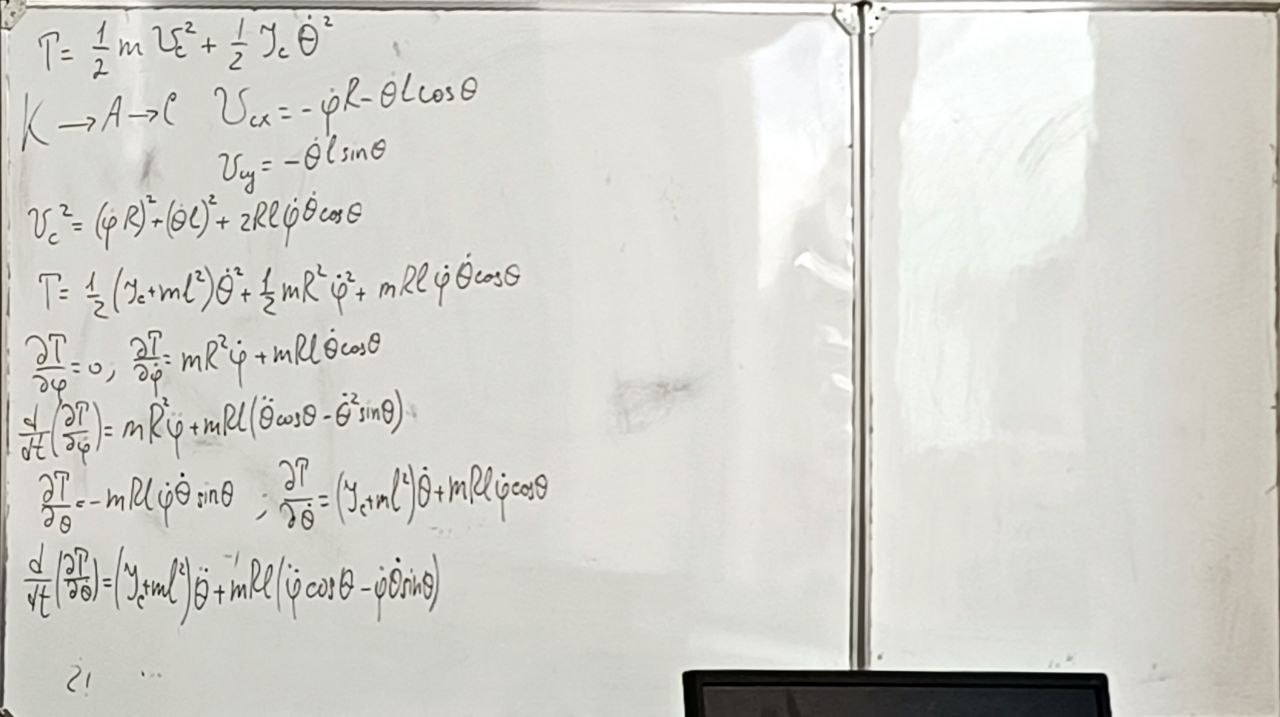 T = 1/2 m V_c² + 1/2 J_c θ̇²
K → A → C   V_cx = -φ̇R - θ̇l cosθ
V_cy = -θ̇l sinθ
V_c² = (φ̇R)² + (θ̇l)² + 2Rlφ̇θ̇cosθ
T = 1/2 (J_c + ml²)θ̇² + 1/2 mR²φ̇² + mRlφ̇θ̇cosθ
∂T/∂φ = 0, ∂T/∂φ̇ = mR²φ̇ + mRlθ̇cosθ
d/dt(∂T/∂φ̇) = mR²φ̈ + mRl(θ̈cosθ - θ̇²sinθ)
∂T/∂θ = -mRlφ̇θ̇ sinθ ; ∂T/∂θ̇ = (J_c + ml²)θ̇ + mRlφ̇cosθ
d/dt(∂T/∂θ̇) = (J_c + ml²)θ̈ + mRl(φ̈cosθ - φ̇θ̇sinθ)